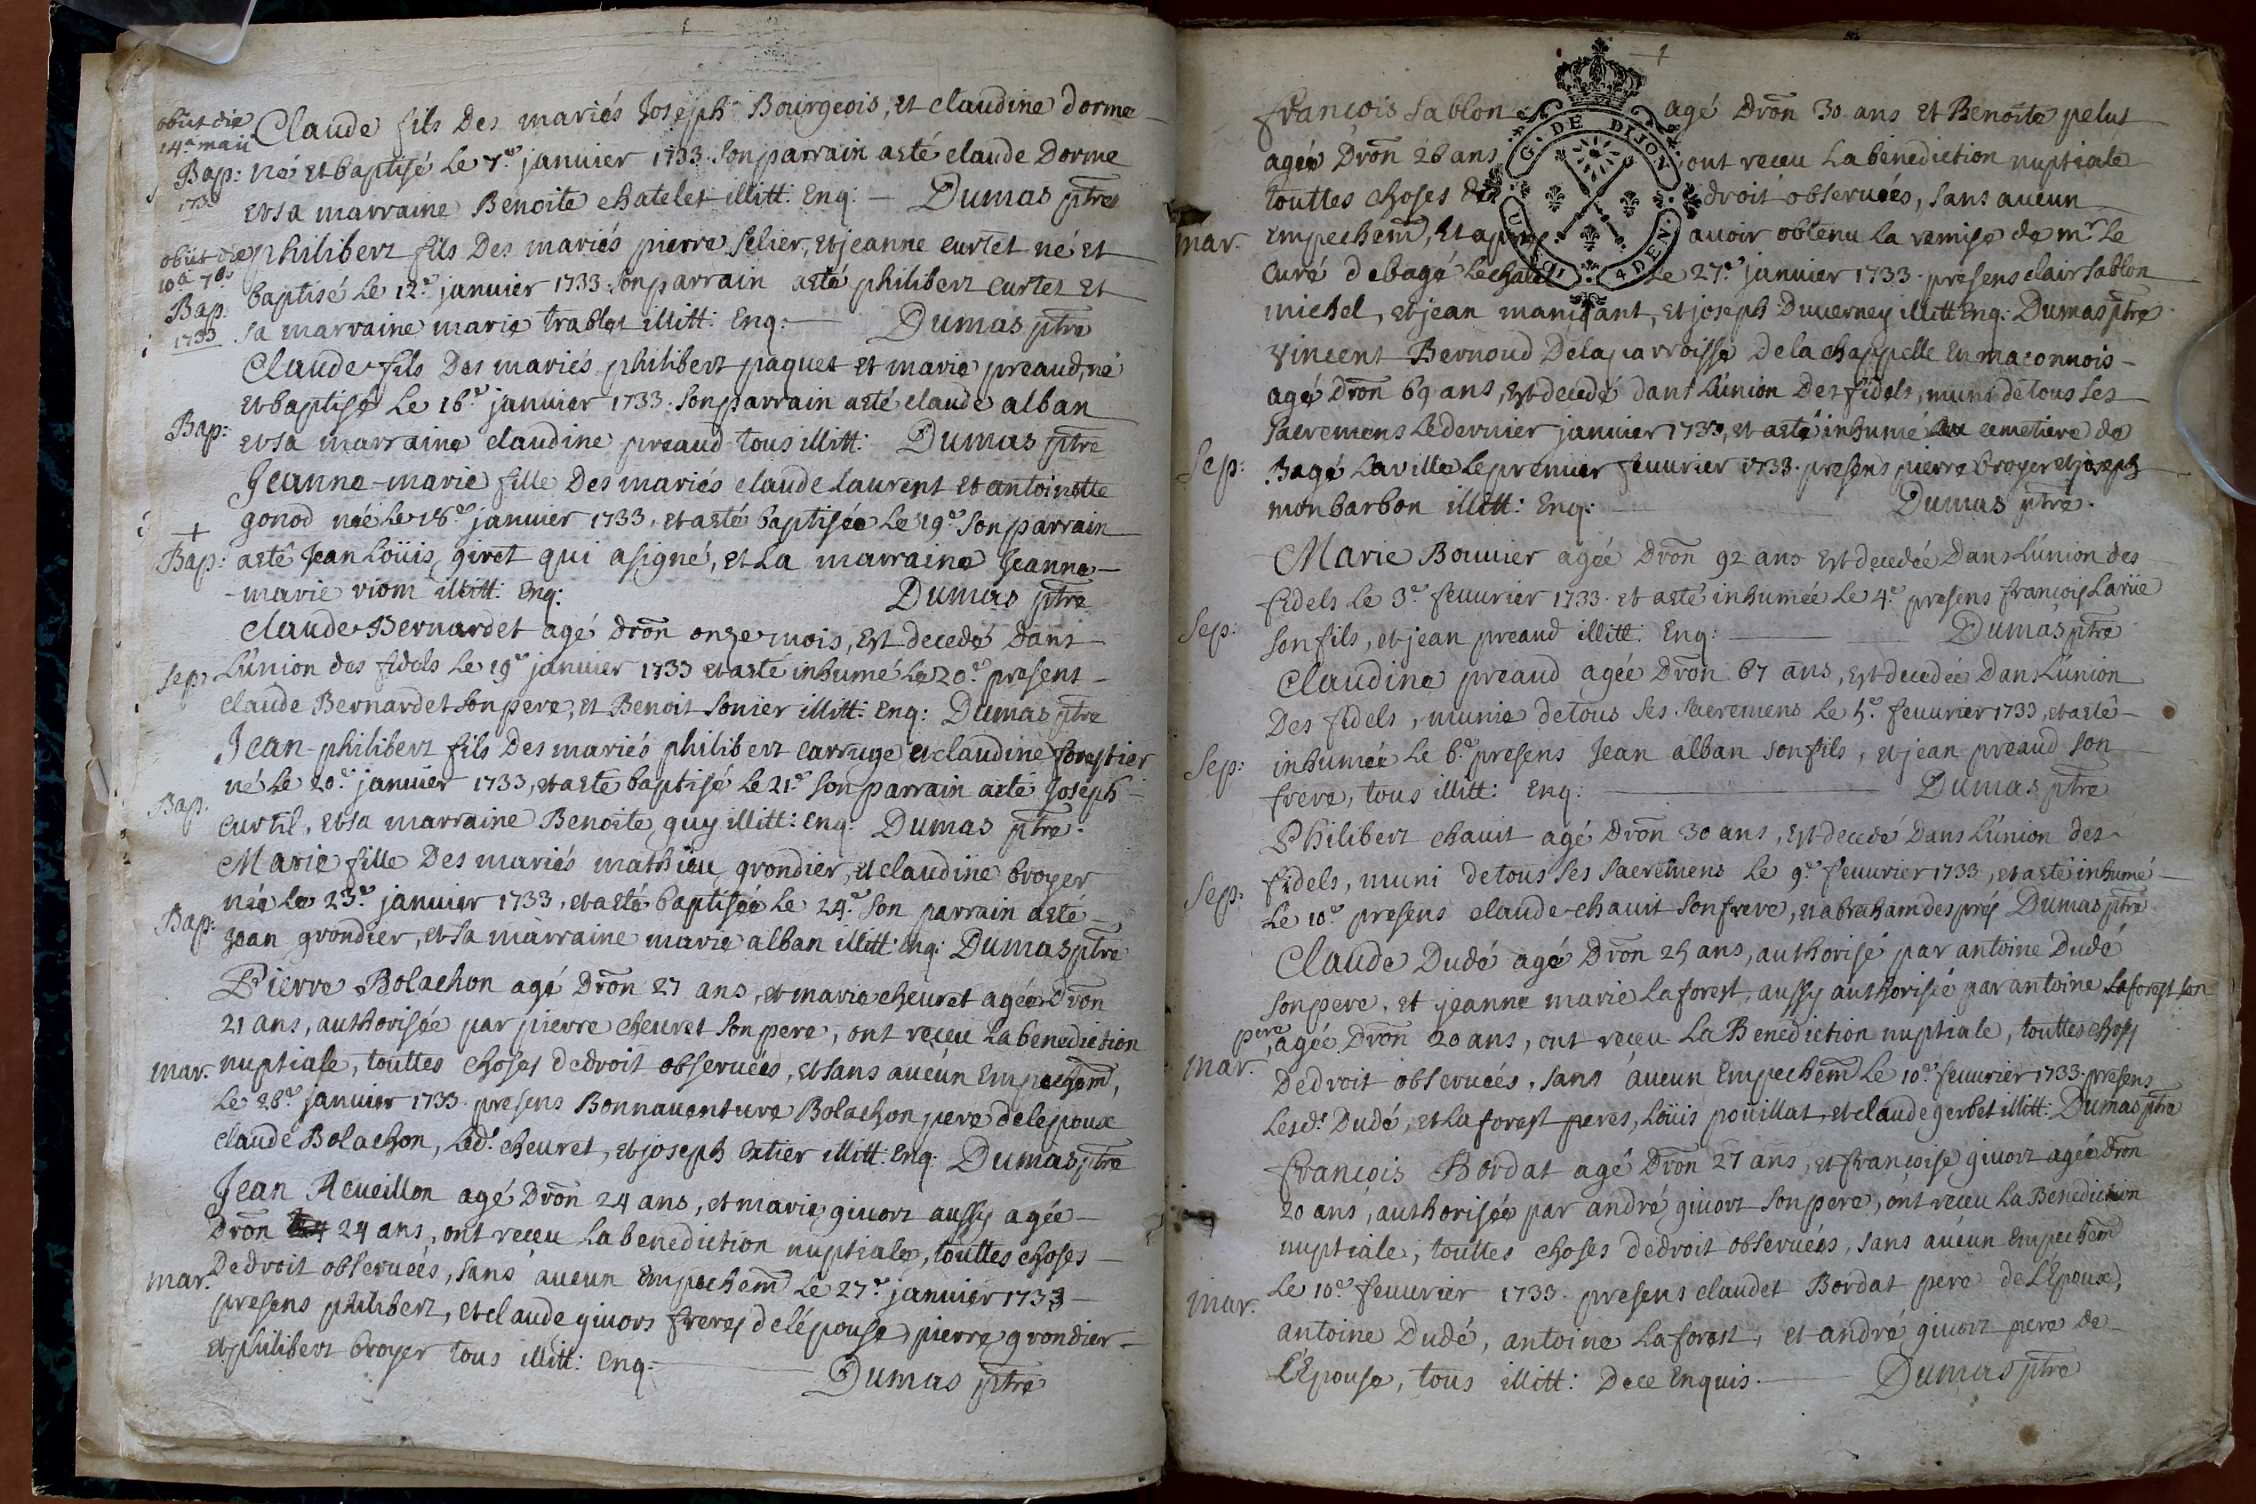 obiit die
14a maii
Bap:
1733
Claude fils Des mariés Joseph Bourgeois, et claudine dorme
né et baptisé Le 7.e janvier 1733. son parrain a eté claude Dorme
et sa marraine Benoite chatelet illitt: Enq: — Dumas ptre
obiit die
10a 7bs
Bap:
1733
philibert fils Des mariés pierre selier, et jeanne curtet né et
baptisé Le 12.e janvier 1733. son parrain a eté philibert curtet Et
sa marraine marie trablet illitt: Enq: — Dumas ptre
Claude fils Des mariés philibert paquet et marie preaud, né
et baptisé Le 16.e janvier 1733. son parrain a eté claude alban
Bap: et sa marraine claudine preaud tous illitt: Dumas ptre
Jeanne-marie fille Des mariés claude Laurent et antoinette
gonod née Le 18.e janvier 1733, et a eté baptisée Le 19.e son parrain
+
Bap: a eté Jean Loüis giret qui a signé, et La marraine Jeanne-
-marie viom illitt: Enq: Dumas ptre
claude Bernardet agé dron onze mois, Est decedé Dans
Sep: L'union des fidels Le 19.e janvier 1733 et a eté inhumé Le 20.e present
claude Bernardet son pere, et Benoit sonier illitt: Enq: Dumas ptre
Jean-philibert fils Des mariés philibert carruge et claudine forestier
né Le 20.e janvier 1733, et a eté baptisé Le 21.e son parrain a eté Joseph
Bap: curtil, et sa marraine Benoite guy illitt: Enq: Dumas ptre.
Marie fille Des mariés mathieu grondier, et claudine broyer
née Le 23.e janvier 1733, et a eté baptisée Le 24.e son parrain a eté
Bap: Jean grondier, et sa marraine marie alban illitt: Enq: Dumas ptre
Pierre Bolachon agé Dron 27 ans, et marie cheuret agée Dron
21 ans, authorisée par pierre cheuret son pere, ont receu La benediction
mar. nuptiale, touttes choses de droit observées, et sans aucun Empechem,
Le 26.e janvier 1733. presens Bonnaventure Bolachon pere de lepoux
claude Bolachon, Led.t cheuret, et joseph Extier illitt: Enq: Dumas ptre
Jean Reveillon agé Dron 24 ans, et marie givort aussy agée
Dron 24 ans, ont receu La benediction nuptiale, touttes choses
mar. De droit observées, sans aucun Empechem Le 27.e janvier 1733
presens philibert, et claude givors freres de lépouse, pierre grondier
et philibert broyer tous illitt: Enq: — Dumas ptre
1
G. DE DIJON
4 DEN.
françois sablon agé Dron 30 ans et Benoite pelut
agée Dron 26 ans, ont receu La benediction nuptiale
touttes choses de droit observées, sans aucun
mar. Empechem, Et apres avoir obtenu La remise de m.r Le
curé de bagé Le chatel Le 27.e janvier 1733. presens clair sablon
michel, et jean manigant, et joseph Duverney illitt Enq: Dumas ptre
vincent Bernoud De la parroisse De la chappelle En maconnois
agé Dron 69 ans, Est decedé dans L'union Des fidels, muni de tous ses
sacremens Le dernier janvier 1733, et a eté inhumé au cemetiere de
Sep: Bagé La ville Le premier feuvrier 1733. presens pierre broyer et joseph
monbarbon illitt: Enq: Dumas ptre.
Marie Bouvier agée Dron 92 ans Est decedée Dans L'union des
fidels Le 3.e feuvrier 1733. et a eté inhumée Le 4.e presens françois Larüe
Sep: son fils, et jean preaud illitt: Enq: — Dumas ptre
claudine preaud agée Dron 67 ans, Est decedée Dans L'union
Des fidels, munie de tous ses sacremens Le 5.e feuvrier 1733, et a eté
Sep: inhumée Le 6.e presens Jean alban son fils, et jean preaud son
frere, tous illitt: Enq: — Dumas ptre
Philibert chavit agé Dron 30 ans, Est decedé Dans L'union des
fidels, muni de tous ses sacremens Le 9.e feuvrier 1733, et a eté inhumé
Sep: Le 10.e presens claude chavit son frere, et abraham després Dumas ptre
Claude Dudé agé Dron 25 ans, authorisé par antoine Dudé
son pere, et jeanne marie Laforest, aussy authorisée par antoine Laforest son
pere, agée Dron 20 ans, ont receu La Benediction nuptiale, touttes choses
mar. De droit observées, sans aucun Empechem Le 10.e feuvrier 1733. presens
Lesd.s Dudé, et Laforest peres, Loüis poüillat, et claude gerbet illitt: Dumas ptre
françois Bordat agé Dron 27 ans, et françoise givort agée Dron
20 ans, authorisée par andré givort son pere, ont receu La Benediction
nuptiale, touttes choses de droit observées, sans aucun Empechem
mar. Le 10.e feuvrier 1733. presens claudet Bordat pere de L'Epoux,
antoine Dudé, antoine Laforest, et andré givort pere de
L'Epouse, tous illitt: De ce Enquis. — Dumas ptre